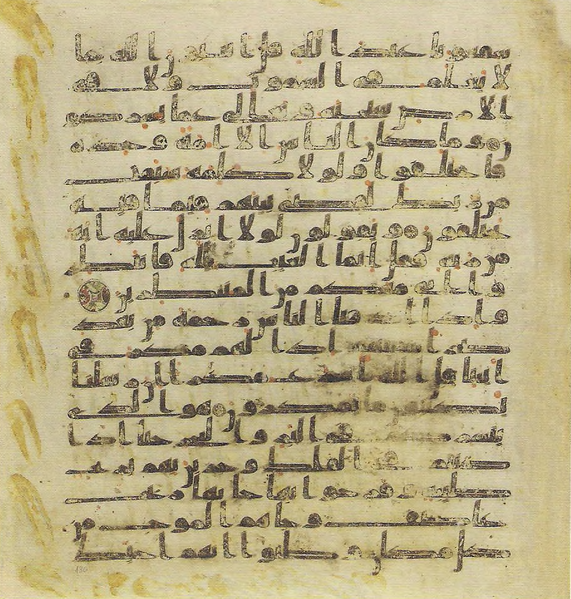 شفعونا عند الله قل اتنبون الله بما
لا يعلم في السموت ولا في
الارض سبحنه وتعلى عما يشركو
ن وما كان الناس الا امه وحده
فاختلفوا ولولا كلمه سبقت
من ربك لقضي بينهم فيما فيه
يختلفون ويقولون لولا انزل عليه ايه
من ربه فقل انما الغيب لله فانتظر
وا اني معكم من المنتظرين
واذا اذقنا الناس رحمه من بعد
ضرا مستهم اذا لهم مكر في
اياتنا قل الله اسرع مكرا ان رسلنا
يكتبون ما تمكرون هو الذي
يسيركم في البر والبحر حتى اذا
كنتم في الفلك وجرين بهم بريح
طيبه وفرحوا بها جاتها ريح
عاصف وجاهم الموج من
كل مكان وظنوا انهم احيط